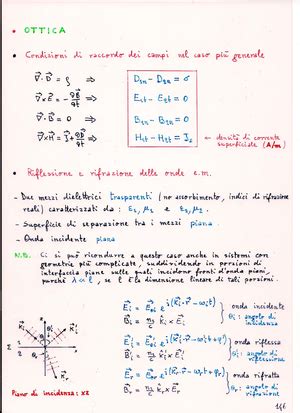 • OTTICA
• Condizioni di raccordo dei campi nel caso più generale
∇⃗·D⃗ = ρ ⇒ D₁ₙ - D₂ₙ = σ
∇⃗×E⃗ = -∂B⃗/∂t ⇒ E₁t - E₂t = 0
∇⃗·B⃗ = 0 ⇒ B₁ₙ - B₂ₙ = 0
∇⃗×H⃗ = J⃗ + ∂D⃗/∂t ⇒ H₁t - H₂t = Js ← densità di corrente
superficiale (A/m)
• Riflessione e rifrazione delle onde e.m.
- Due mezzi dielettrici trasparenti (no assorbimento, indici di rifrazione
reali) caratterizzati da: ε₁, μ₁ e ε₂, μ₂.
- Superficie di separazione tra i mezzi piana.
- Onda incidente piana
N.B. Ci si può ricondurre a questo caso anche in sistemi con
geometria più complicata, suddividendo in porzioni di
interfaccia piane sulle quali incidono fronti d'onda piani,
purché λ<<l, se l è la dimensione lineare di tali porzioni.
onda incidente
θi: angolo di
incidenza
onda riflessa
angolo di
riflessione
onda rifratta
angolo di
rifrazione
Piano di incidenza: XZ